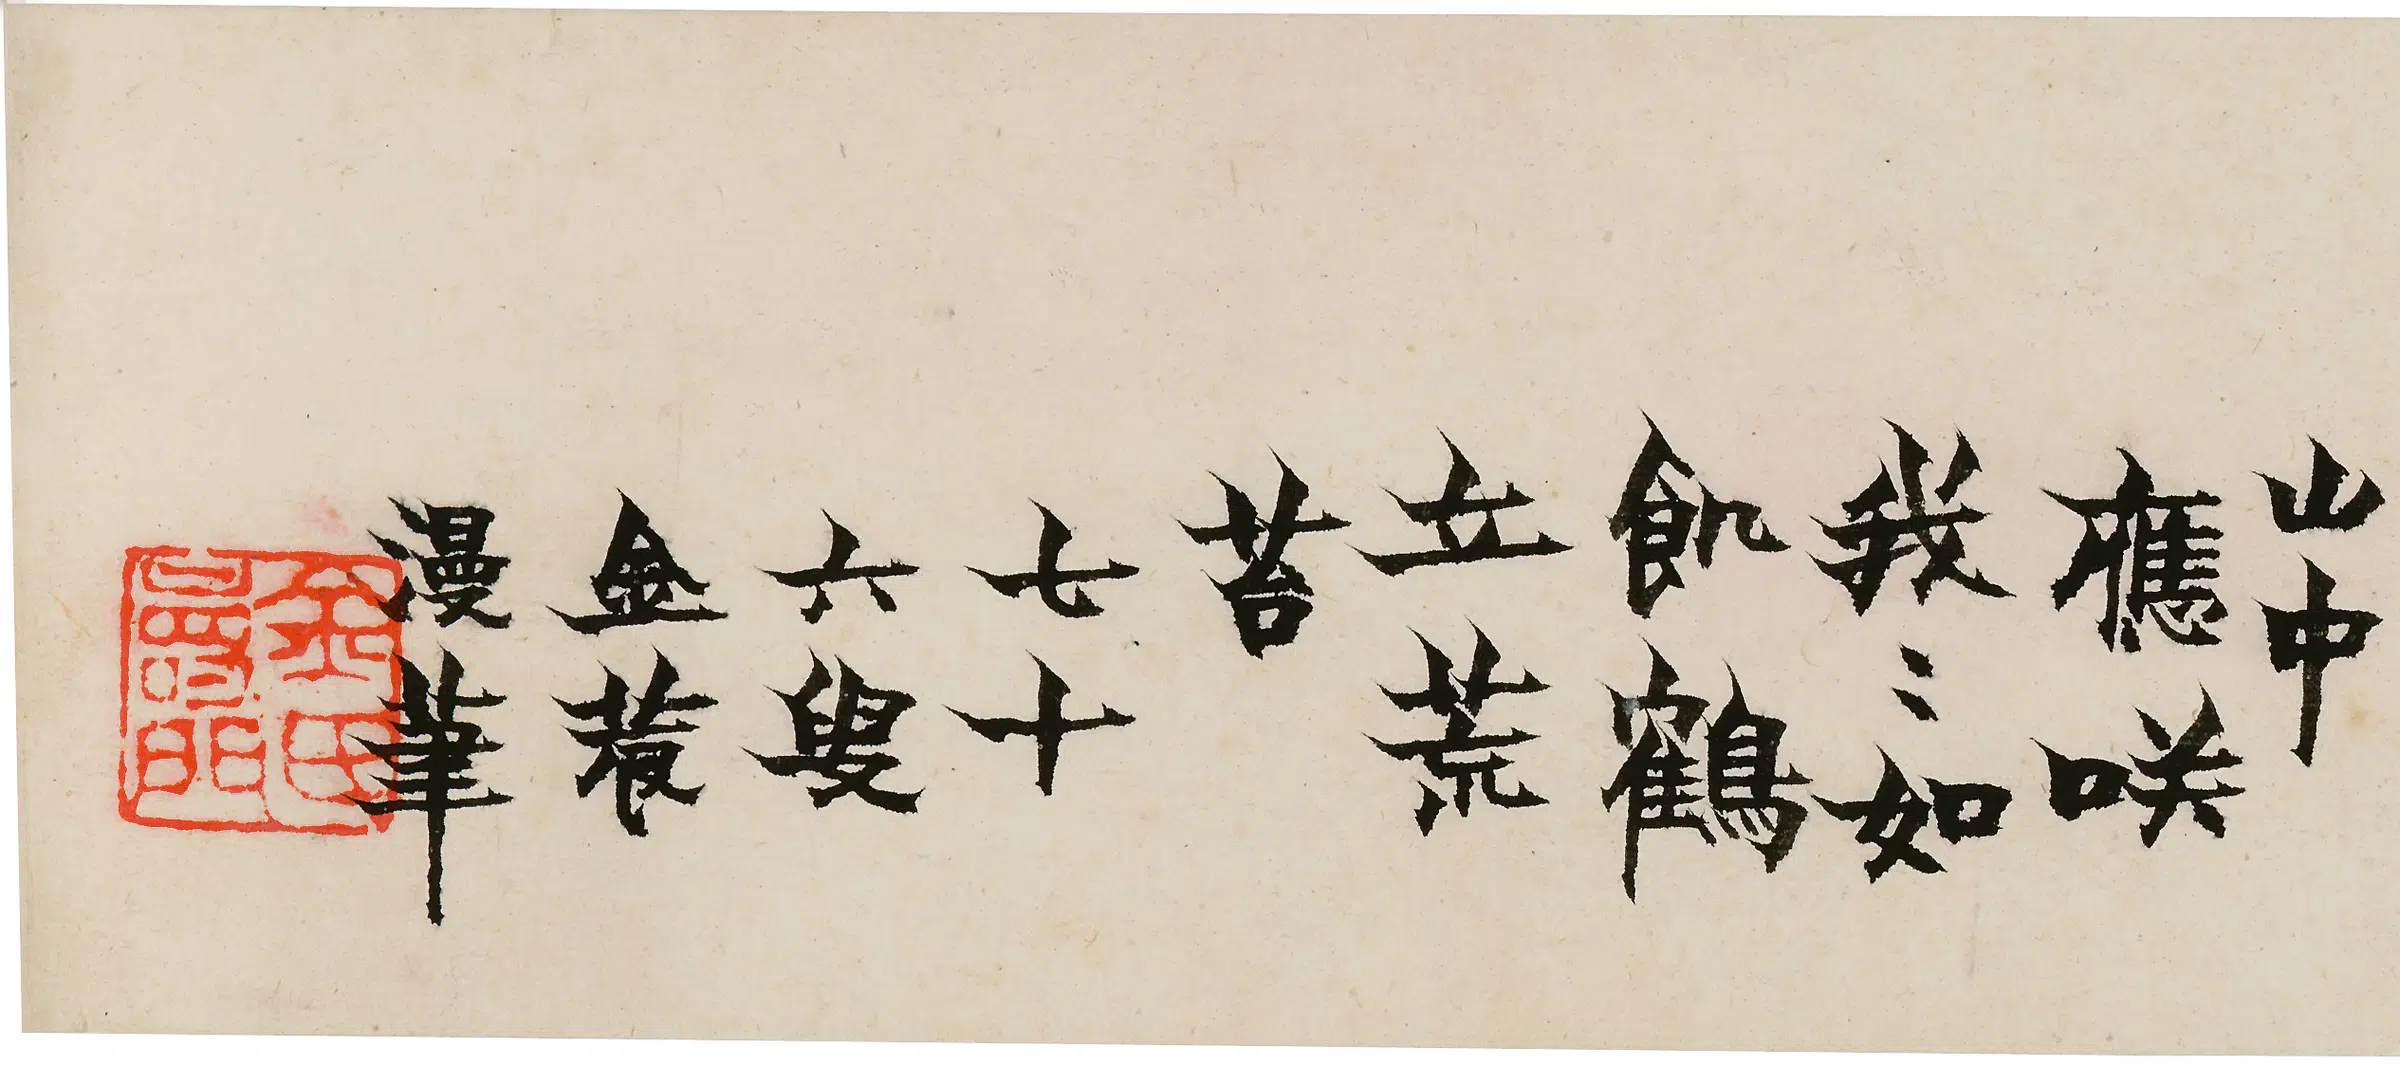 山中
應咲
我〻如
飢鶴
立荒
苔
七十
六叟
金農
漫筆
金氏
壽門